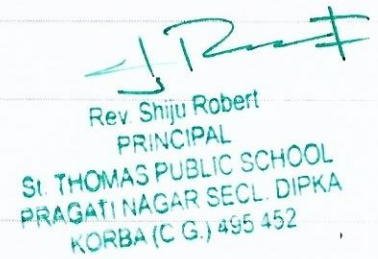 Rev. Shiju Robert
PRINCIPAL
St. THOMAS PUBLIC SCHOOL
PRAGATI NAGAR SECL. DIPKA
KORBA (C G.) 495 452